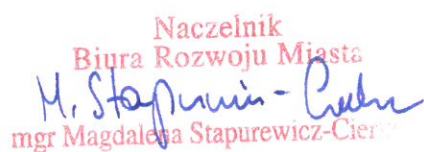 Naczelnik
Biura Rozwoju Miasta
M. Stapurewicz-
mgr Magdalena Stapurewicz-